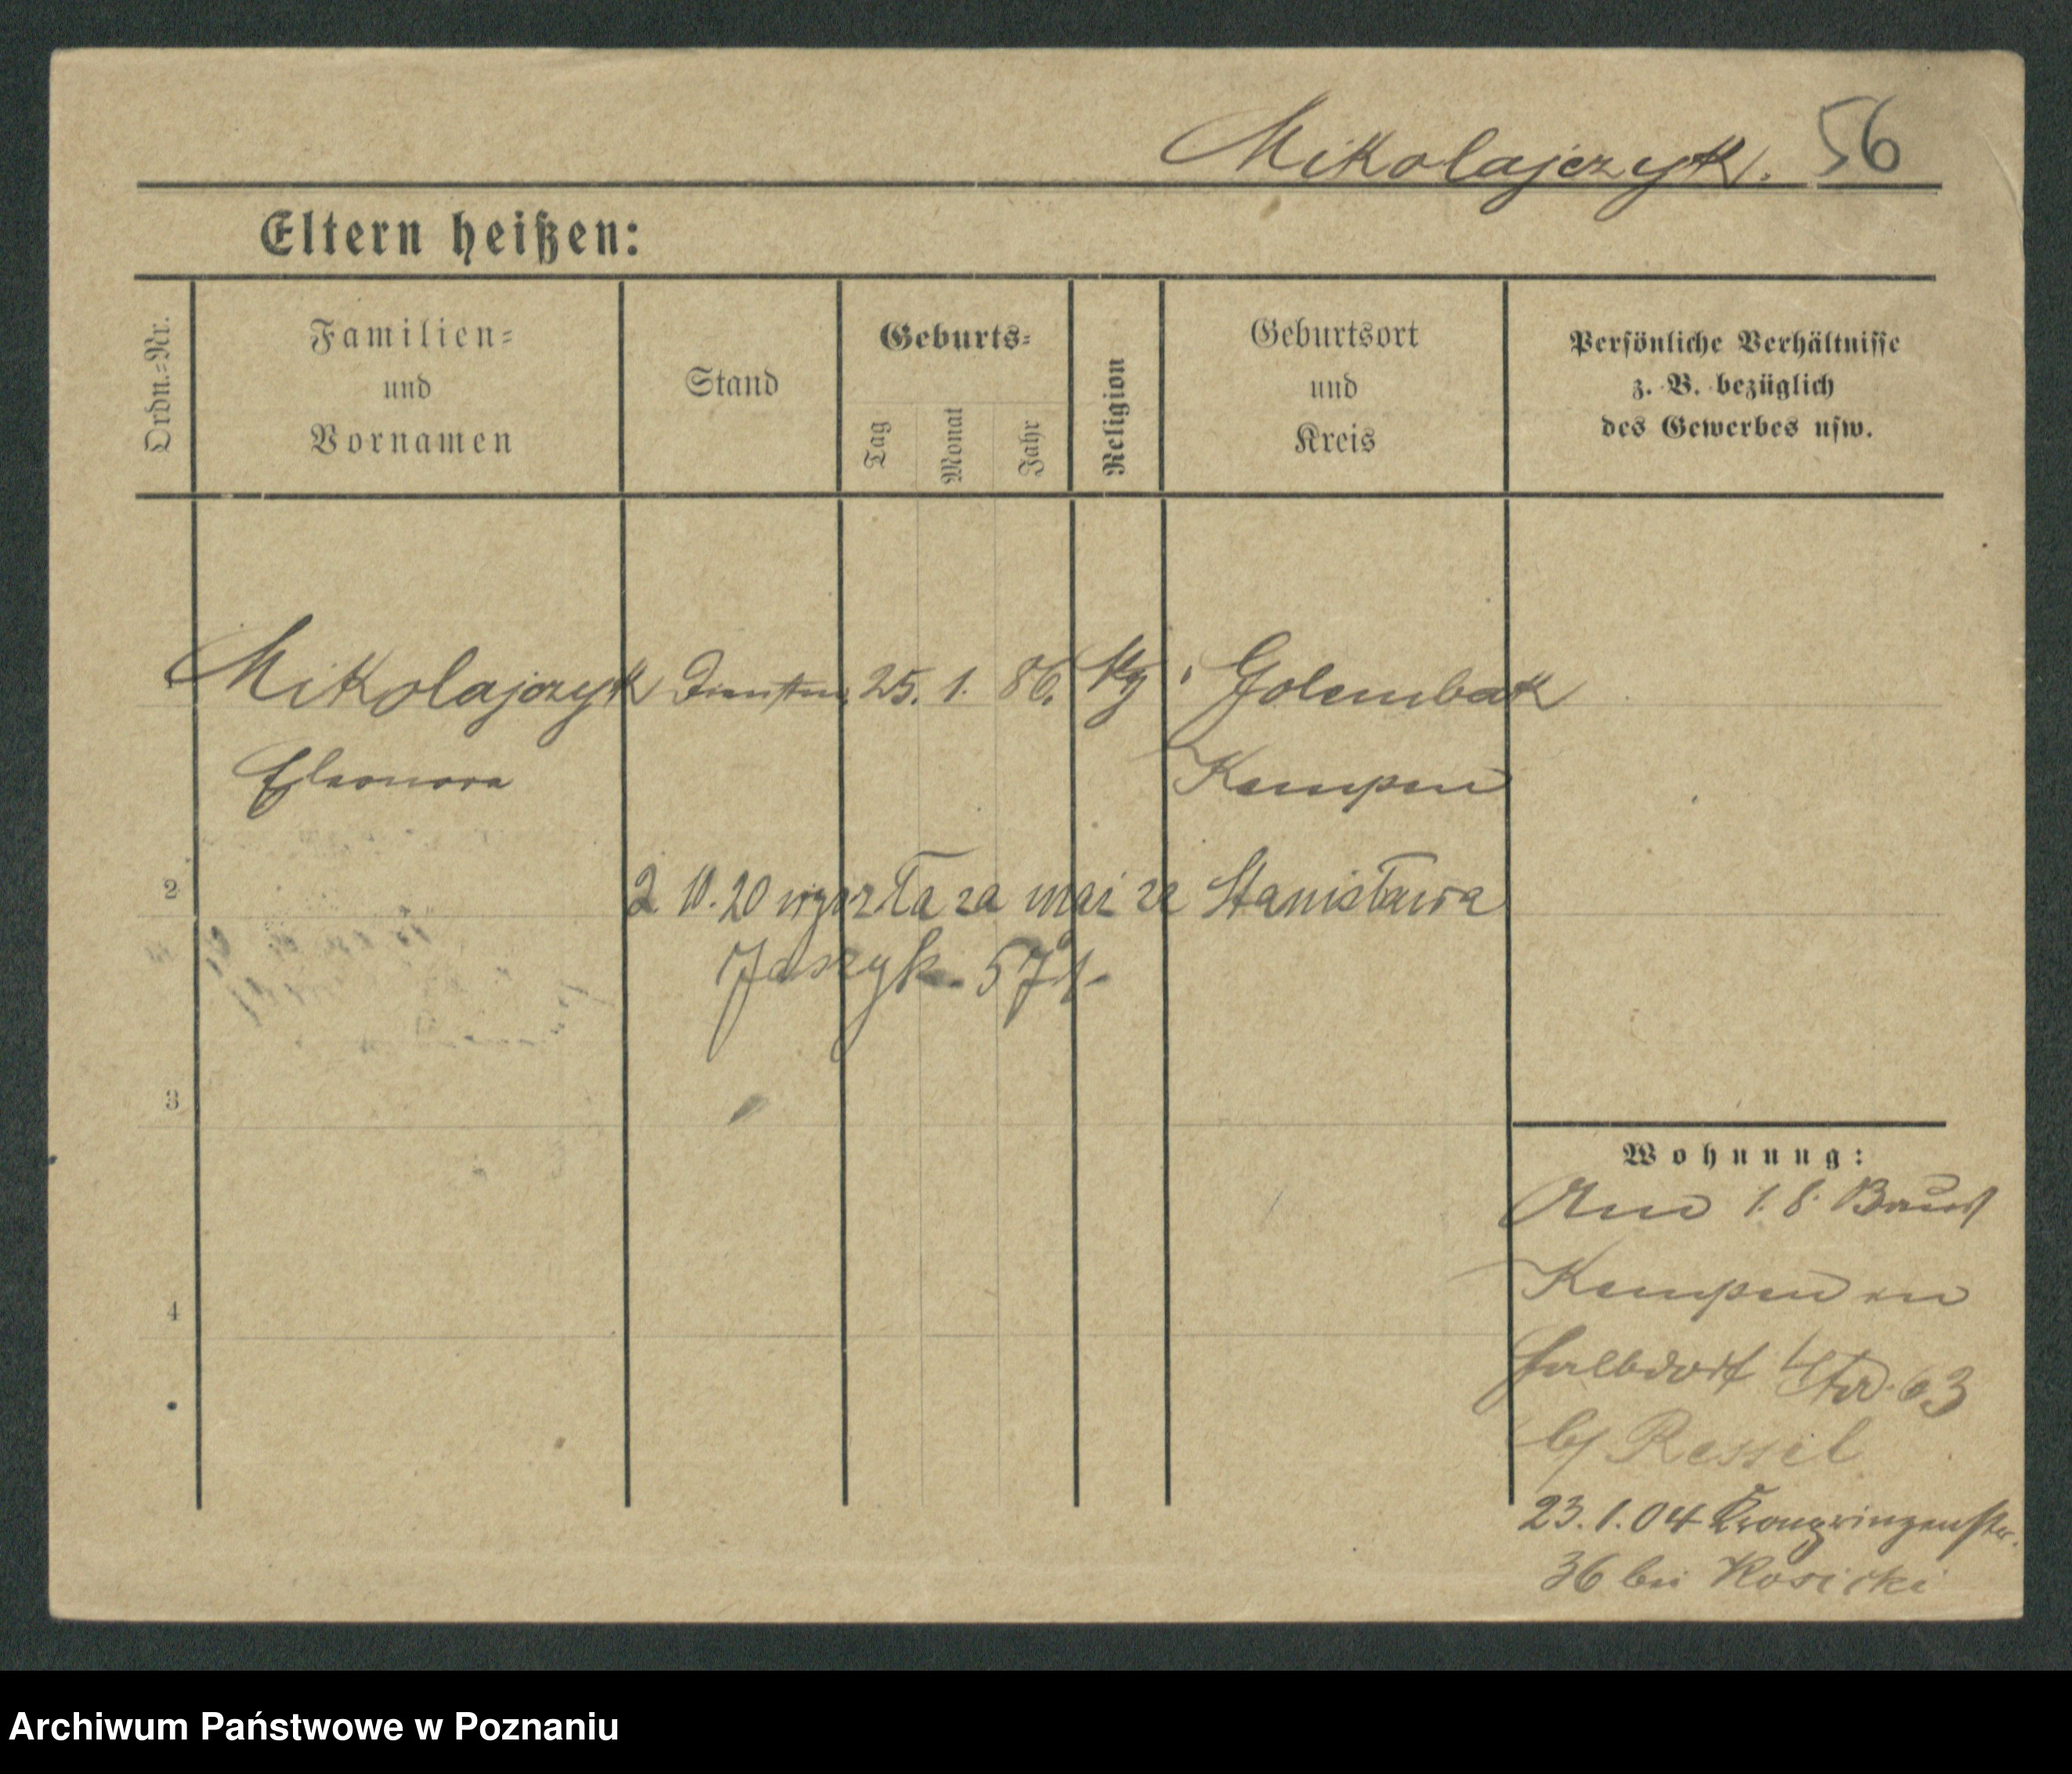 Mikolajczyk. 56
Eltern heißen:
Ordn.=Nr.
Familien=
und
Vornamen
Stand
Geburts=
Tag
Monat
Jahr
Religion
Geburtsort
und
Kreis
Persönliche Verhältnisse
z. B. bezüglich
des Gewerbes usw.
1 Mikolajczyk 25. 1. 86. Golembak
Eleonora Kempen
2 2 10.20 wyszła za mąż za Stanisława
Jaszyk
3
Wohnung:
1. 8.
Kempen in
4
63
b/ Ressel
23.1.04 Kronprinzenstr.
36 bei Kosicki
Archiwum Państwowe w Poznaniu